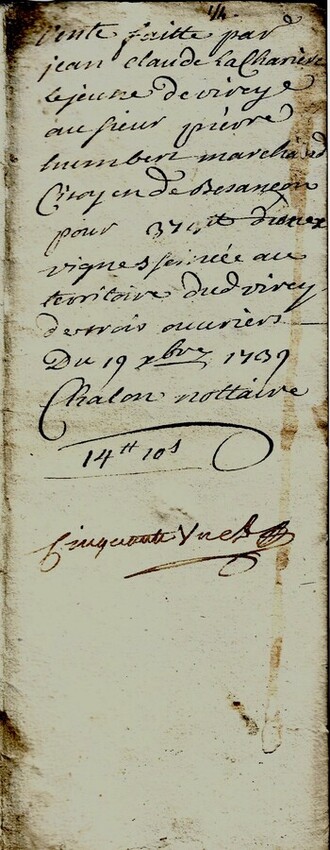 14.
Vente faitte par
jean Claude LaChariere
Lejeune deVireÿ
au sieur pierre
humbert marchand
Citoyen de Besançon
pour 374tt
vignes scituée au
territoire dud virey
de trois ouvriers
Du 19 xbre 1739
Chalon nottaire
14tt 10s
Cinquante Vne